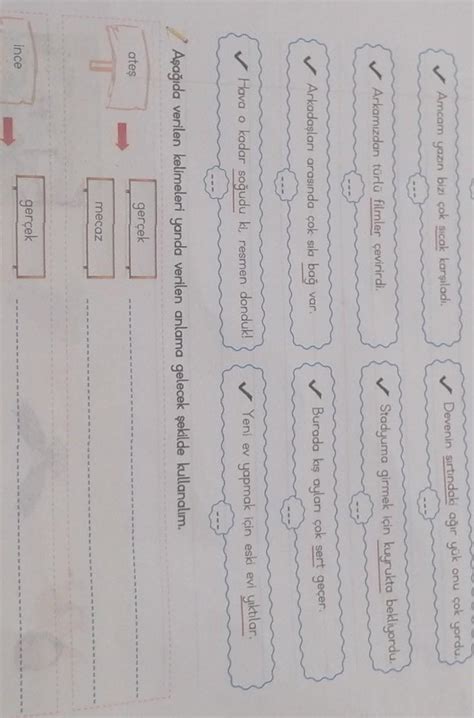 ✓ Amcam yazın bizi çok sıcak karşıladı.
---
✓ Devenin sırtındaki ağır yük onu çok yordu.
---
✓ Arkamızdan türlü filmler çevirirdi.
---
✓ Stadyuma girmek için kuyrukta bekliyordu.
---
✓ Arkadaşları arasında çok sıkı bağ var.
---
✓ Burada kış ayları çok sert geçer.
---
✓ Hava o kadar soğudu ki, resmen donduk!
---
✓ Yeni ev yapmak için eski evi yıktılar.
---
Aşağıda verilen kelimeleri yanda verilen anlama gelecek şekilde kullanalım.
ateş
gerçek
mecaz
ince
gerçek